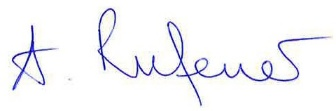 A. Rufener